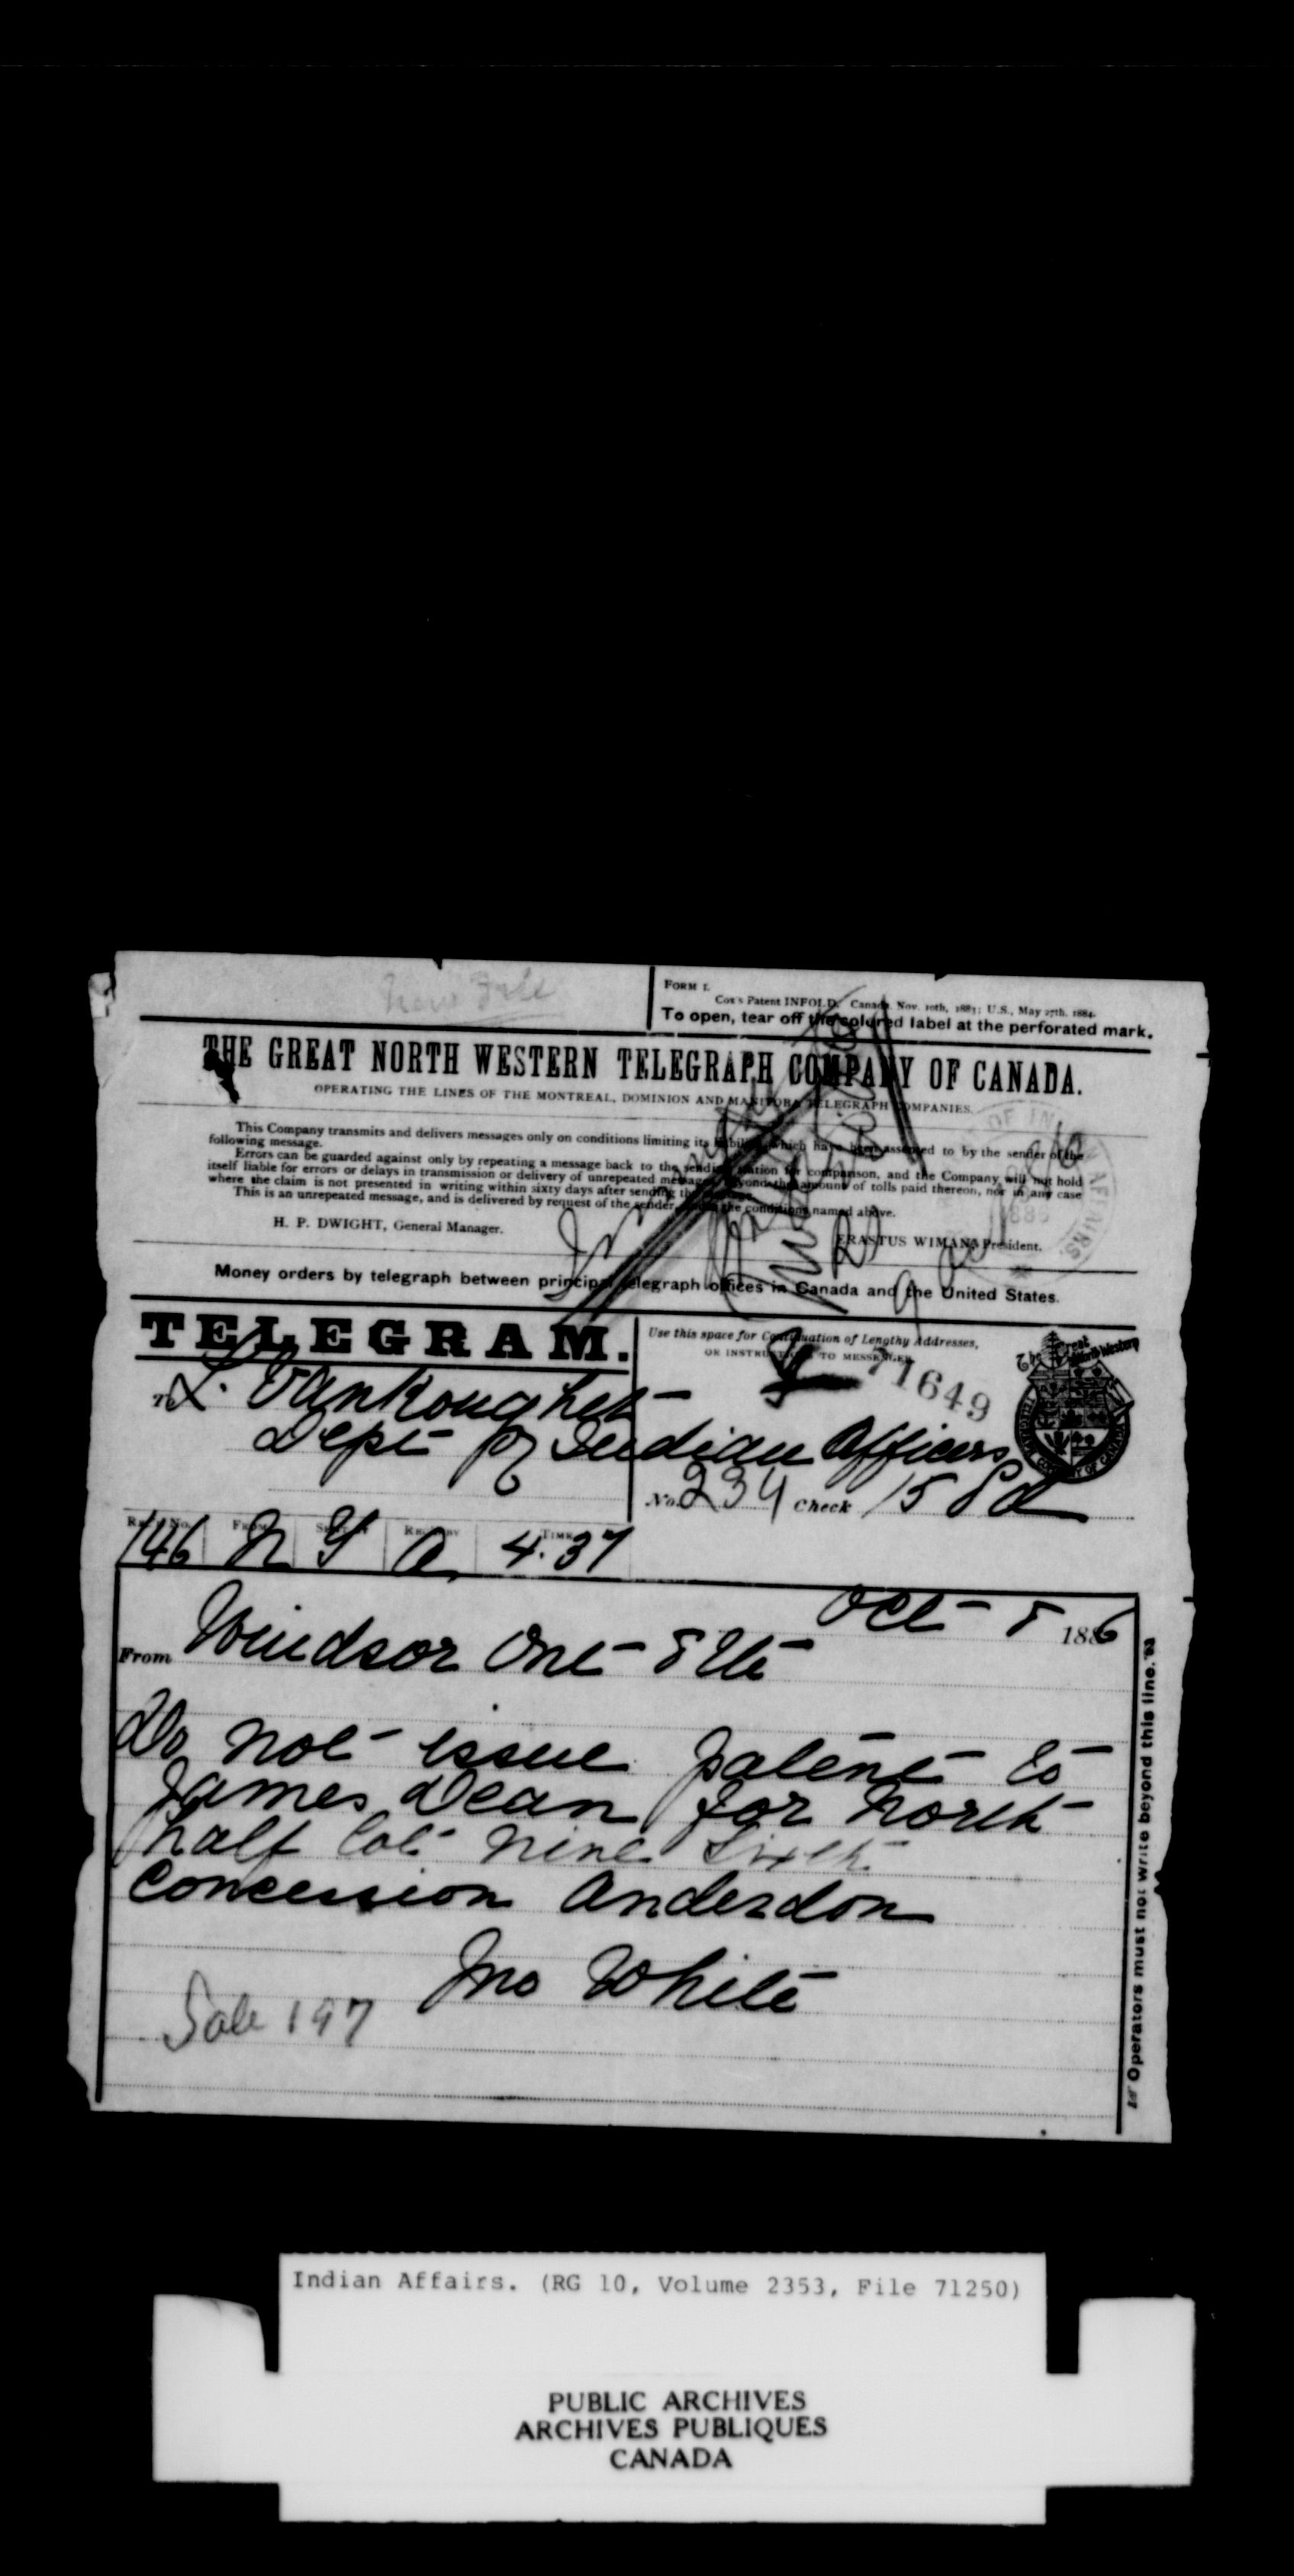 New File
FORM 1.
Cox's Patent INFOLD. Canada, Nov. 10th, 1883; U.S., May 27th, 1884.
To open, tear off the colored label at the perforated mark.
THE GREAT NORTH WESTERN TELEGRAPH COMPANY OF CANADA.
OPERATING THE LINES OF THE MONTREAL, DOMINION AND MANITOBA TELEGRAPH COMPANIES.
This Company transmits and delivers messages only on conditions limiting its liability, which have been assented to by the sender of the
following message.
Errors can be guarded against only by repeating a message back to the sending station for comparison, and the Company will not hold
itself liable for errors or delays in transmission or delivery of unrepeated messages, beyond the amount of tolls paid thereon, nor in any case
where the claim is not presented in writing within sixty days after sending the message.
This is an unrepeated message, and is delivered by request of the sender, under the conditions named above.
H. P. DWIGHT, General Manager.
ERASTUS WIMAN, President.
Money orders by telegraph between principal telegraph offices in Canada and the United States.
TELEGRAM.
Use this space for Continuation of Lengthy Addresses,
OR INSTRUCTIONS TO MESSENGER.
71649
To L. VanKoughnet
Dept of Indian Officers
No. 234 Check 15 Pd
146 N Y A 4.37
Oct 8 1886
From Windsor Ont 8th
Do not issue patent to
James Dean for North
half lot nine Sixth
Concession Anderdon
Jno White
Sale 197
Operators must not write beyond this line.
Indian Affairs. (RG 10, Volume 2353, File 71250)
PUBLIC ARCHIVES
ARCHIVES PUBLIQUES
CANADA